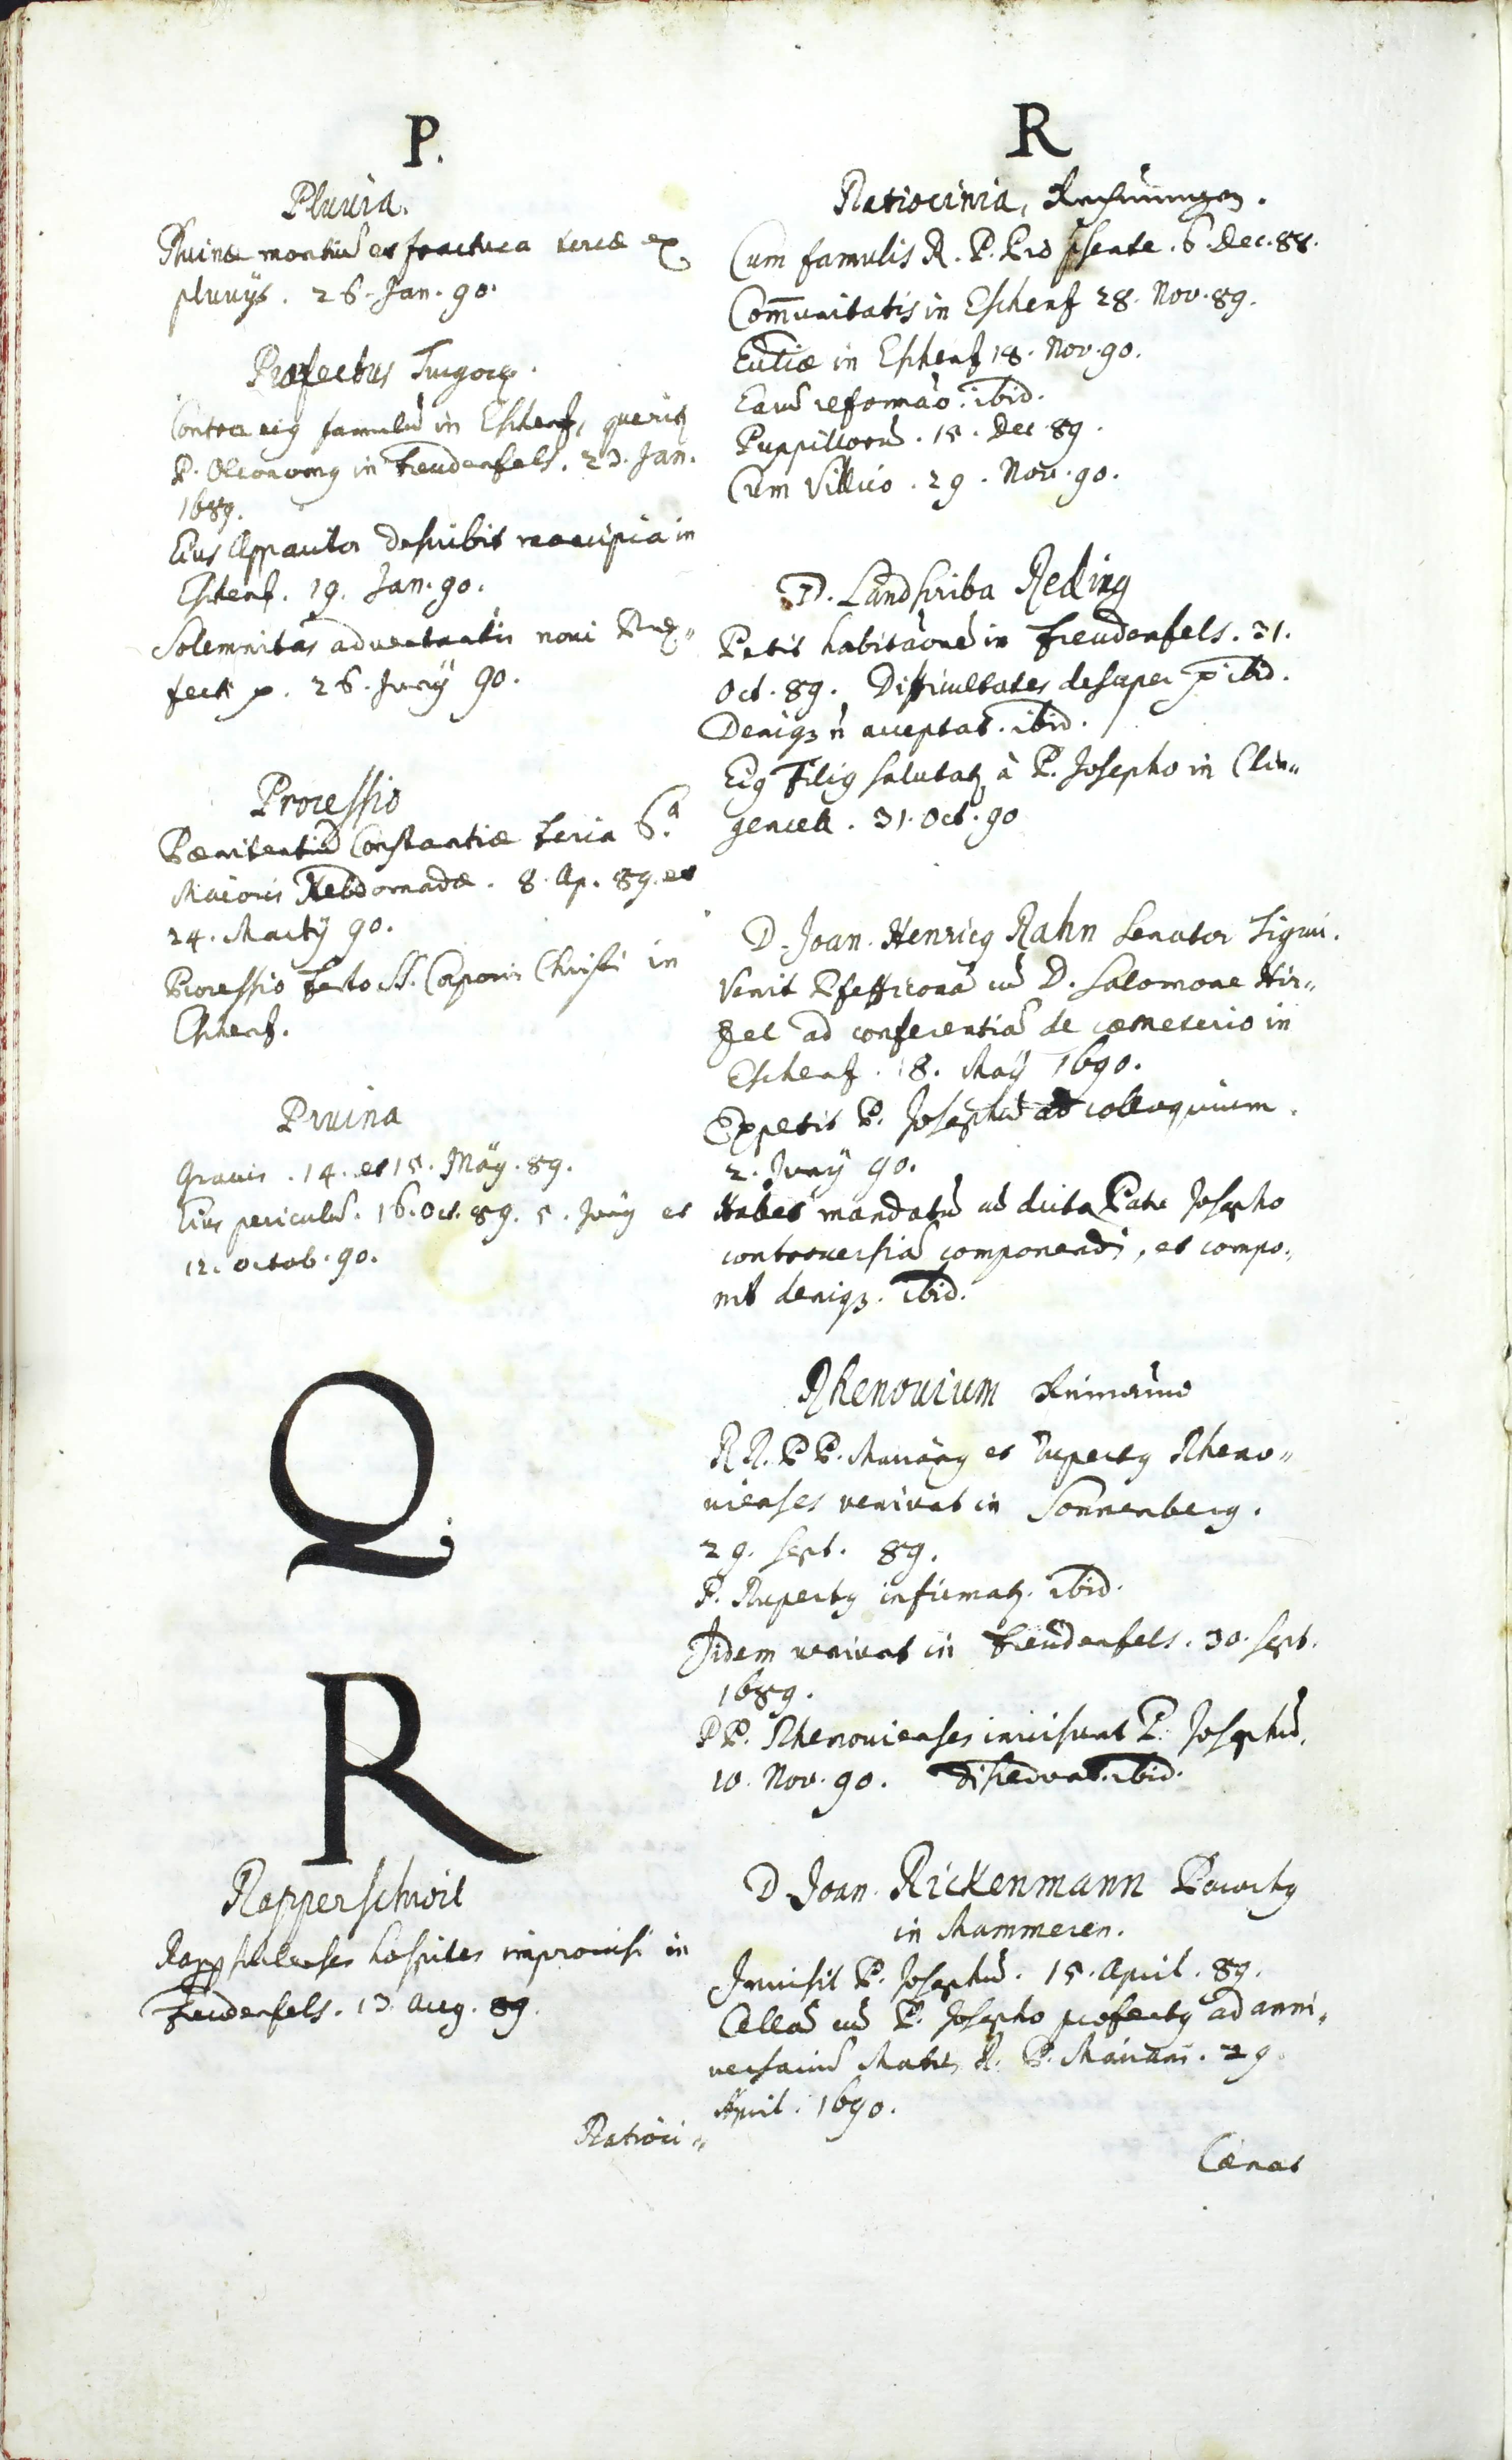 P.
Pluvia.
Ruinæ montiũ et fractura terræ ex
pluvijs. 26. Jan. 90.
Præfectus Turgoiæ.
Contra eiꝯ famulũ in Eschenz, querit̃
P. Oeconomꝯ in Freudenfels. 23. Jan.
1689.
Eius Apparitor describit mancipia in
Eschenz. 19. Jan. 90.
Solemnitas adventantis novi Præ„
fecti p. 26. Junij 90.
Processio
Pœnitentiũ Constantiæ feria 6.ª
Maioris Hebdomadæ. 8. Ap. 89. et
24. Martij 90.
Processio festo SS. Corporis Christi in
Eschenz.
Pruina
Gravis. 14. et 15. Maÿ. 89.
Eius periculũ. 16. Oct. 89. 5. Junij et
12. Octob. 90.
Q
R
Rapperschwil
hospites improvisi in
Freudenfels. 13. Aug. 89.
Ratioci„
R
Ratiocinia, Rechnungen.
Cum famulis R. P. Pro p̃sente. 6. Dec. 88.
Com̃unitatis in Eschenz 28. Nov. 89.
in Eschenz 18. Nov. 90.
Earũ reformaõ. ibid.
Puppillorũ. 15. Dec. 89.
Cum Villico. 29. Nov. 90.
D. Landscriba Reding
Petit habitãonẽ in Freudenfels. 31.
Oct. 89. Difficultates desuper p ibid.
Deniqꝫ ñ acceptat. ibid.
Eiꝯ Filiꝯ salutat̃ à P. Josepho in Clin„
genzell. 31. Oct. 90
D. Joan. Henricꝯ Rahn Senator Tigur.
Venit Pfefficonã cũ D. Salomone Hir„
zel ad conferentiã de cœmeterio in
Eschenz. 18. Maÿ 1690.
Expetit P. Josephũ ad colloquium.
2. Junij 90.
Habet mandatũ cũ dicto Patre Josepho
controversiã componendi, et compo„
nit deniqꝫ. ibid.
Rhenovium Rheinauw
RR. PP. Maurꝯ et Rupertꝯ Rheno„
vienses veniunt in Sonnenberg.
29. Sept. 89.
P. Rupertꝯ infirmat̃. ibid.
Iidem veniunt in Freudenfels. 30. Sept.
1689.
PP. Rhenovienses invisunt P. Josephũ.
10. Nov. 90. Discedunt. ibid.
D. Joan. Rickenmann Parochꝯ
in Mammeren.
Invisit P. Josephũ. 15. April. 89.
Cellã cũ P. Josepho profectꝯ ad anni„
versariũ Matris R. P. Mariani. 29.
April. 1690.
Cœnat